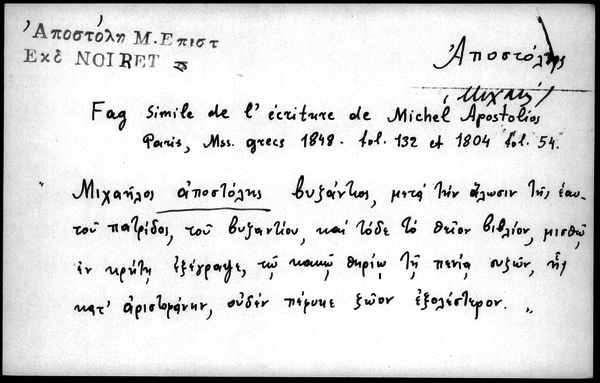 Ἀποστόλη Μ. Επιστ
Εκδ NOIRET
Ἀποστόλης
Μιχαήλ
Fag Simile de l' écriture de Michel Apostolios
Paris, Mss. grecs 1848. fol. 132 et 1804 fol. 54.
" Μιχαῆλος ἀποστόλης βυζάντιος, μετὰ τὴν ἅλωσιν τῆς ἑαυ-
τοῦ πατρίδος, τοῦ βυζαντίου, καὶ τόδε τὸ θεῖον βιβλίον, μισθῷ
ἐν κρήτῃ ἐξέγραψε, τῷ κακῷ θηρίῳ τῇ πενίᾳ συζῶν, ἧς
κατ' ἀριστοφάνην, οὐδὲν πέφυκε ζῶον ἐξολέστερον. "